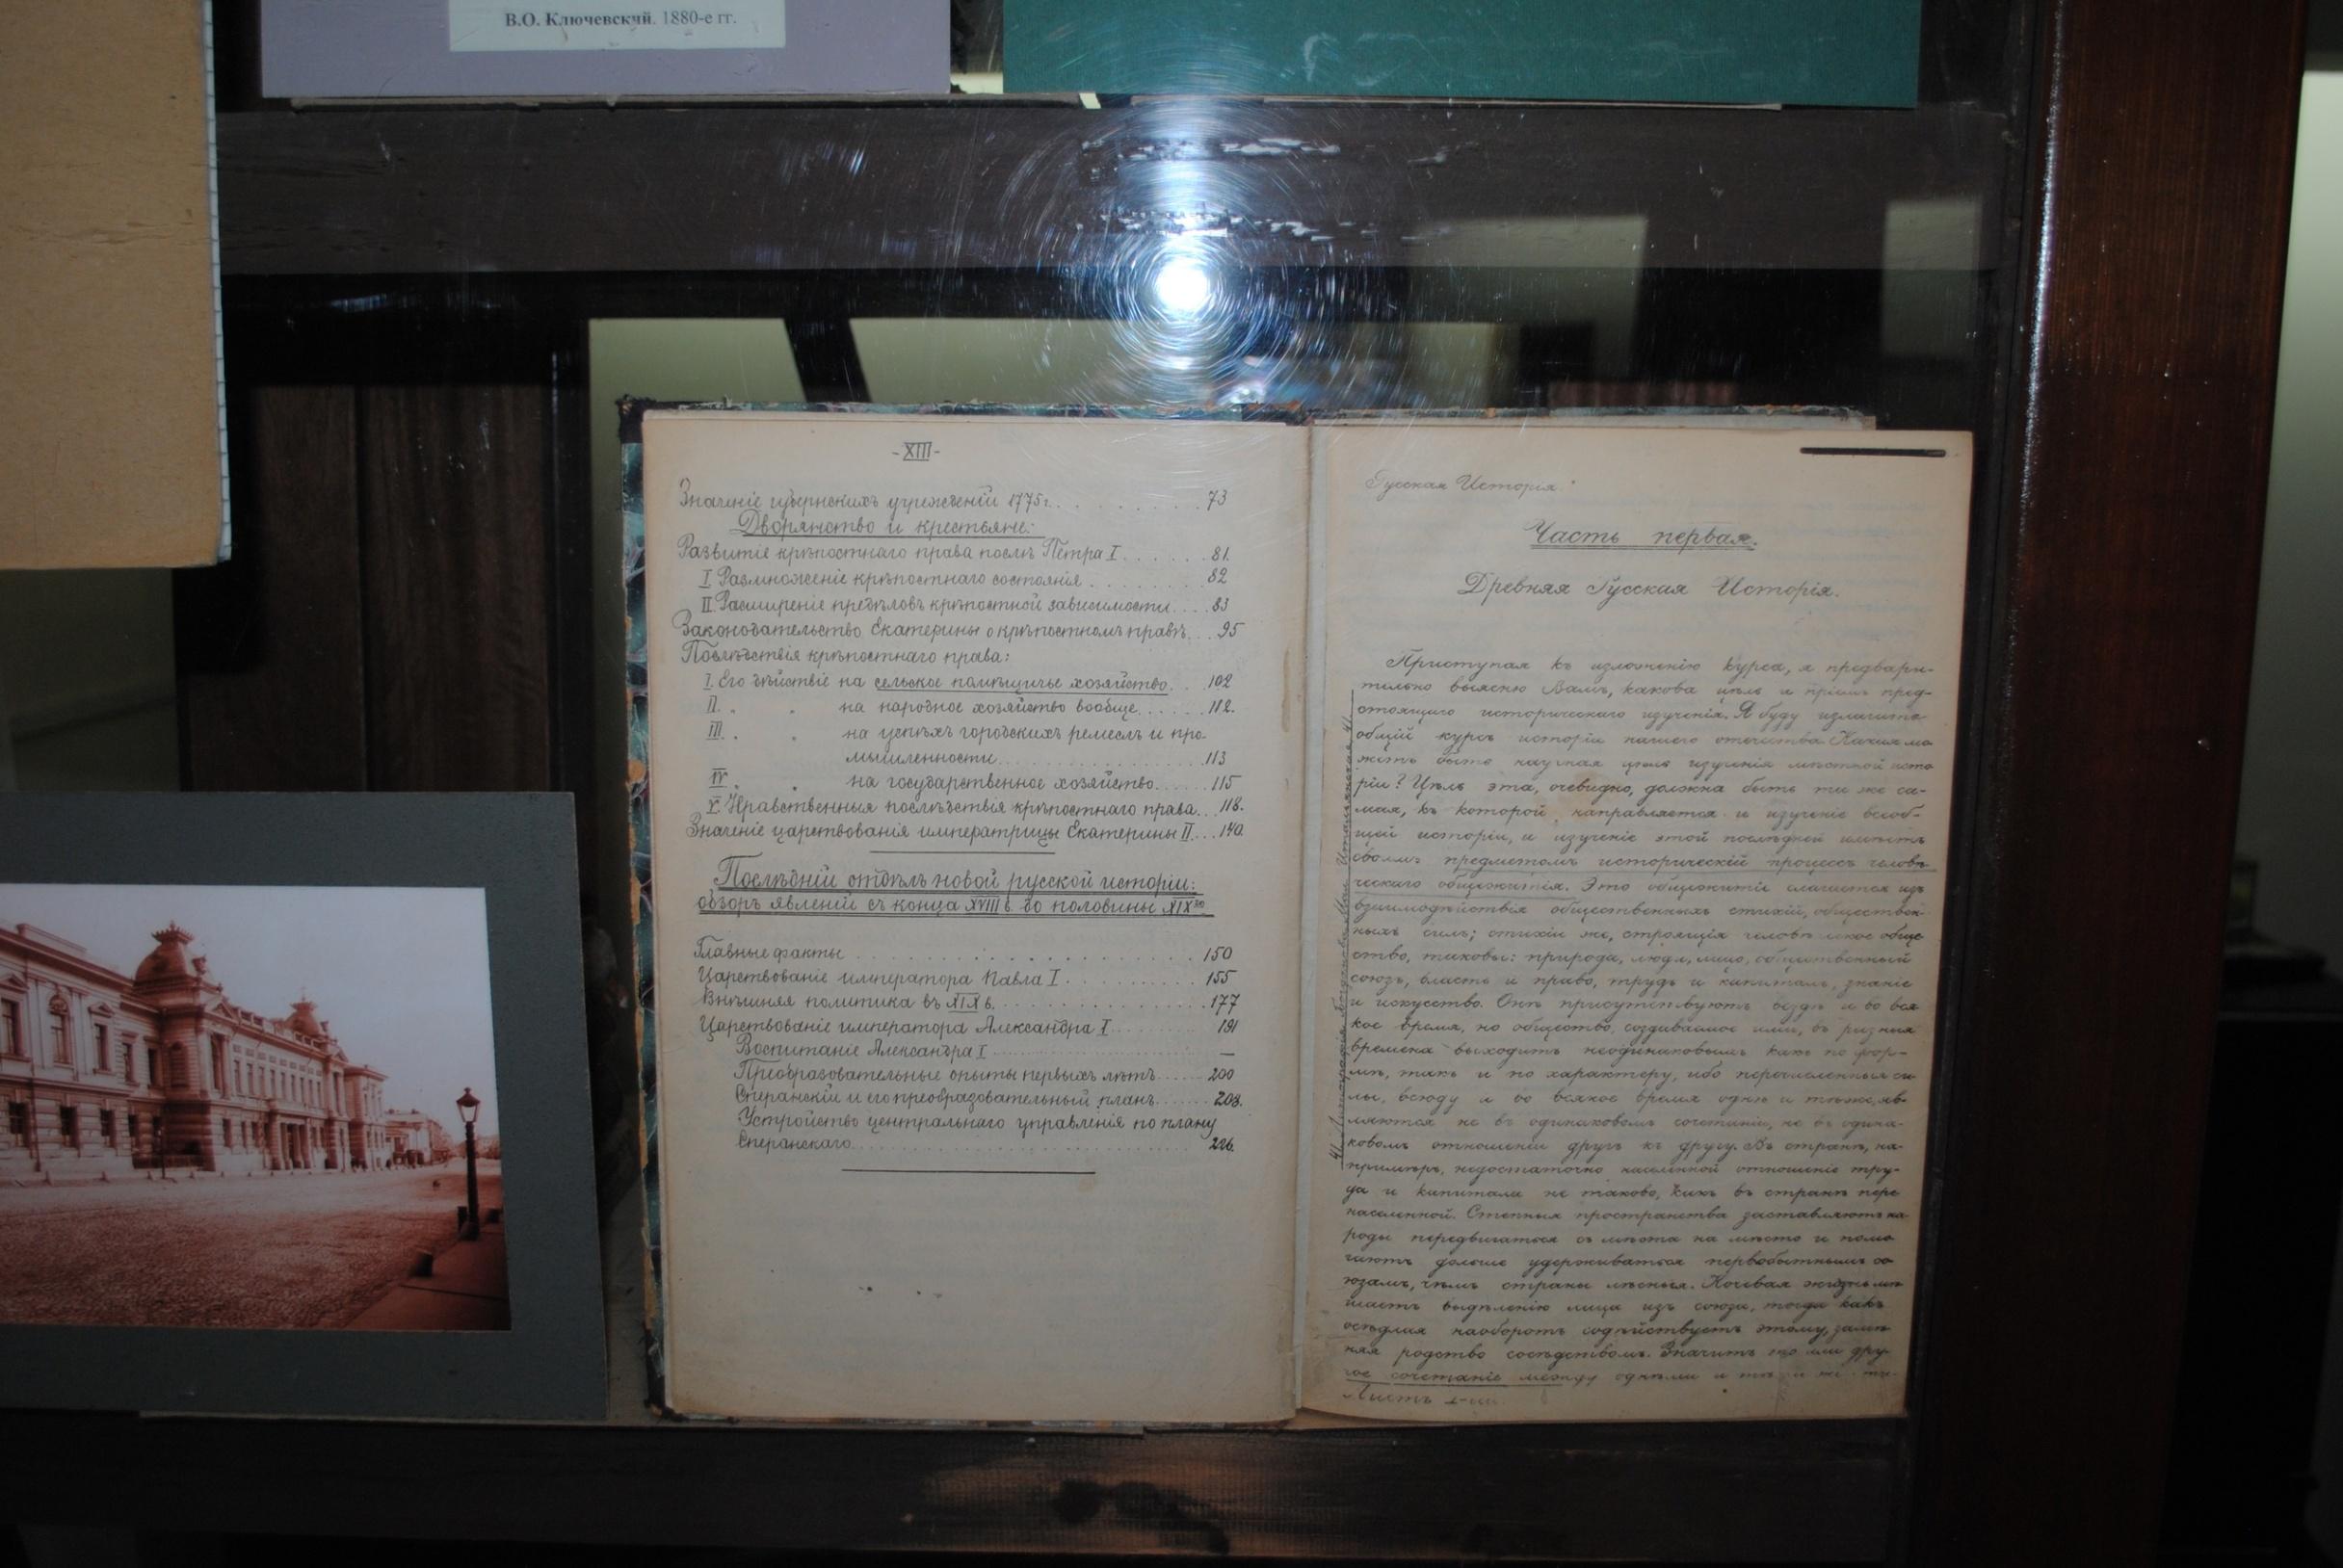 В.О. Ключевский. 1880-е гг.
-XIII-
Значеніе губернскихъ учрежденій 1775 г. . . . . . . . 73
Дворянство и крестьяне:
Развитіе крѣпостнаго права послѣ Петра I . . . . . . 81.
I Размноженіе крѣпостнаго состоянія . . . . . . . 82
II. Расширеніе предѣловъ крѣпостной зависимости. . . . 83
Законодательство Екатерины о крѣпостномъ правѣ. . . 95
Послѣдствія крѣпостнаго права:
I. Его дѣйствіе на сельское помѣщичье хозяйство. . . 102
II. " " на народное хозяйство вообще. . . . . . 112.
III. " " на успѣхъ городскихъ ремеслъ и про-
мышленности. . . . . . . . . . . 113
IV. " " на государственное хозяйство. . . . . 115
V. Нравственныя послѣдствія крѣпостнаго права. . . 118.
Значеніе царствованія императрицы Екатерины II. . . . 140.
Послѣдній отдѣлъ новой русской исторіи:
обзоръ явленій съ конца XVIII в. до половины XIX го
Главные факты . . . . . . . . . . . . . . . . 150
Царствованіе императора Павла I . . . . . . . . 155
Внѣшняя политика въ XIX в. . . . . . . . . . . . 177
Царствованіе императора Александра I . . . . . . . 191
Воспитаніе Александра I . . . . . . . . . . . —
Преобразовательные опыты первыхъ лѣтъ . . . . . 200
Сперанскій и его преобразовательный планъ . . . . . 203.
Устройство центральнаго управленія по плану
Сперанскаго. . . . . . . . . . . . . . . . 206.
Русская Исторія.
Часть первая.
Древняя Русская Исторія.
Приступая къ изложенію курса, я предвари-
тельно выясню Вамъ, какова цѣль и пріемы пред-
стоящаго историческаго изученія. Я буду излагать
общій курсъ исторіи нашего отечества. Какая мо-
жетъ быть научная цѣль изученія мѣстной исто-
ріи? Цѣль эта, очевидно, должна быть та же са-
мая, къ которой направляется и изученіе всеоб-
щей исторіи, и изученіе этой послѣдней имѣетъ
своимъ предметомъ историческій процессъ человѣ-
ческаго общежитія. Это общежитіе слагается изъ
взаимодѣйствія общественныхъ стихій, обществен-
ныхъ силъ; стихіи же, строящія человѣческое обще-
ство, таковы: природа, люди, лицо, общественный
союзъ, власть и право, трудъ и капиталъ, знаніе
и искусство. Онѣ присутствуютъ вездѣ и во вся-
кое время, но общество, создаваемое ими, въ разныя
времена выходитъ неодинаковымъ какъ по фор-
мѣ, такъ и по характеру, ибо перечисленныя си-
лы, всюду и во всякое время однѣ и тѣ же, яв-
ляются не въ одинаковомъ сочетаніи, не въ одина-
ковомъ отношеніи другъ къ другу. Въ странѣ, на-
примѣръ, недостаточно населенной отношеніе тру-
да и капитала не таково, какъ въ странѣ пере-
населенной. Степныя пространства заставляютъ на-
роды передвигаться съ мѣста на мѣсто и помо-
гаютъ дольше удерживаться первобытнымъ со-
юзамъ, чѣмъ страны лѣсныя. Кочевая жизнь мѣ-
шаетъ выдѣленію лица изъ союза, тогда какъ
осѣдлая наоборотъ содѣйствуетъ этому, замѣ-
няя родство сосѣдствомъ. Значитъ то или дру-
гое сочетаніе между однѣми и тѣми же
Листъ 1-